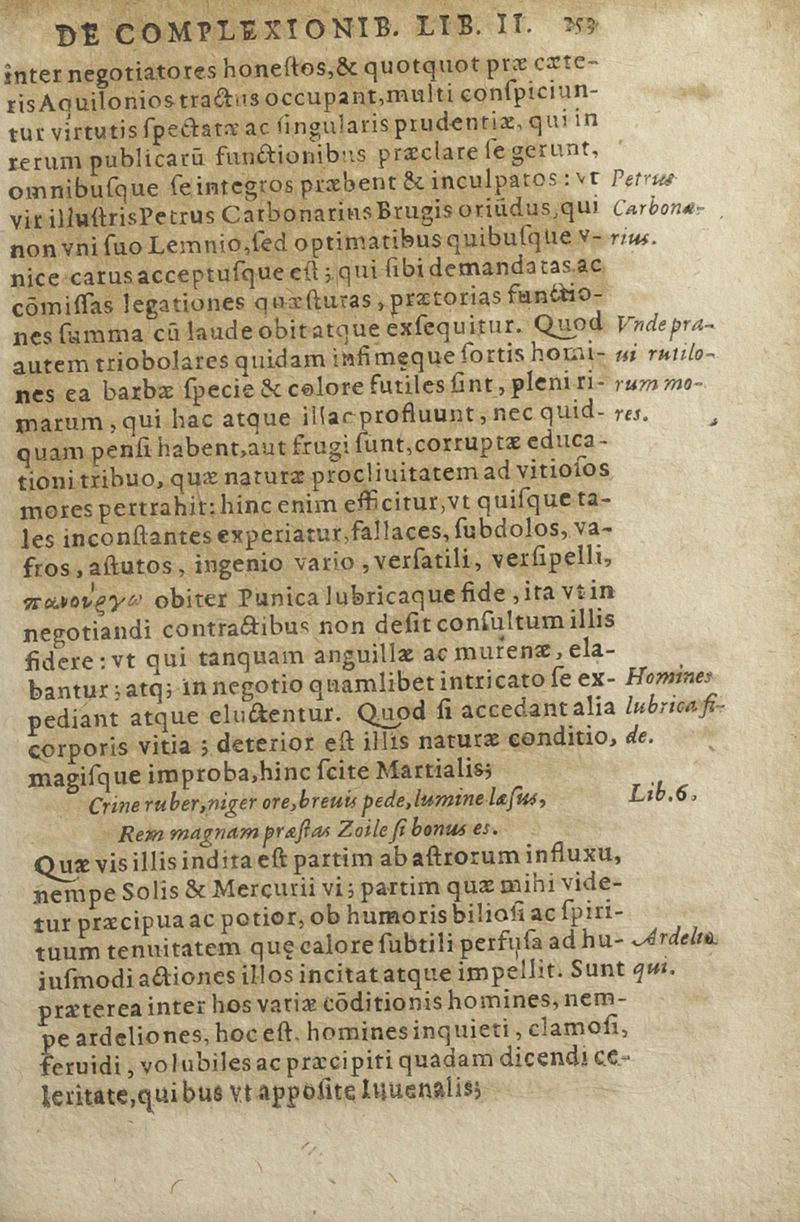 DE COMPLEXIONIB. LIB. II.
inter negotiatores honeſtos,& quotquot præ cæte-
ris Aquilonios tractus occupant,multi conſpiciun-
tur virtutis ſpectatæ ac ſingularis prudentiæ, qui in
rerum publicarū functionibus præclare ſe gerunt,
omnibuſque ſe integros præbent & inculpatos : vt Petrus
vir illuſtris Petrus Carbonarius Brugis oriūdus,qui Carbona-
non vni ſuo Lemnio,ſed optimatibus quibuſque v- rius.
nice carus acceptuſque eſt ; qui ſibi demandatas ac
cōmiſſas legationes quæſturas , prætorias functio-
nes ſumma cū laude obit atque exſequitur. Quod Vnde pra-
autem triobolares quidam infimęque ſortis homi- ui rutilo-
nes ea barbæ ſpecie & colore futiles ſint , pleni ri- rum mo-
marum , qui hac atque illac profluunt , nec quid- res.
quam penſi habent,aut frugi ſunt,corruptæ educa-
tioni tribuo, quæ naturæ procliuitatem ad vitioſos
mores pertrahit: hinc enim efficitur,vt quiſque ta-
les inconſtantes experiatur,fallaces, ſubdolos, va-
fros , aſtutos , ingenio vario , verſatili , verſipelli,
πανούργῳ obiter Punica lubricaque fide , ita vt in
negotiandi contractibus non deſit conſultum illis
fidere : vt qui tanquam anguillæ ac murenæ , ela-
bantur ; atq; in negotio quamlibet intricato ſe ex- Homines
pediant atque eluctentur. Quod ſi accedant alia lubrica fi-
corporis vitia ; deterior eſt illis naturæ conditio, de.
magiſque improba,hinc ſcite Martialis;
Crine ruber,niger ore,breuis pede,lumine læſus, Lib.6.
Rem magnam præſtas Zoile ſi bonus es.
Quæ vis illis indita eſt partim ab aſtrorum influxu,
nempe Solis & Mercurii vi ; partim quæ mihi vide-
tur præcipua ac potior, ob humoris bilioſi ac ſpiri-
tuum tenuitatem quę calore ſubtili perfuſa ad hu- Ardelio
iuſmodi actiones illos incitat atque impellit. Sunt qui.
præterea inter hos variæ cōditionis homines, nem-
pe ardeliones, hoc eſt. homines inquieti , clamoſi,
feruidi , volubiles ac præcipiti quadam dicendi ce-
leritate,quibus vt appoſite Iuuenalis;